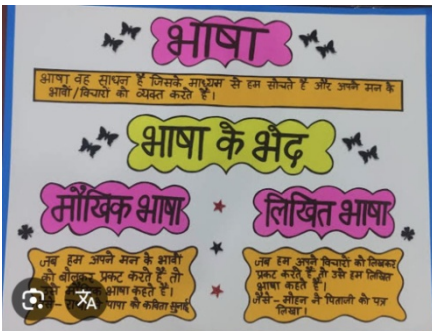 भाषा
भाषा वह साधन है जिसके माध्यम से हम सोचते है और अपने मन के
भावों/विचारों को व्यक्त करते है।
भाषा के भेद
मौखिक भाषा
लिखित भाषा
जब हम अपने मन के भावों
को बोलकर प्रकट करते है तो
भाषा कहते है।
पापा को कविता सुनाई
जब हम अपने विचारों को लिखकर
प्रकट करते है तो उसे हम लिखित
भाषा कहते है।
जैसे - मोहन ने पिताजी को पत्र
लिखा।